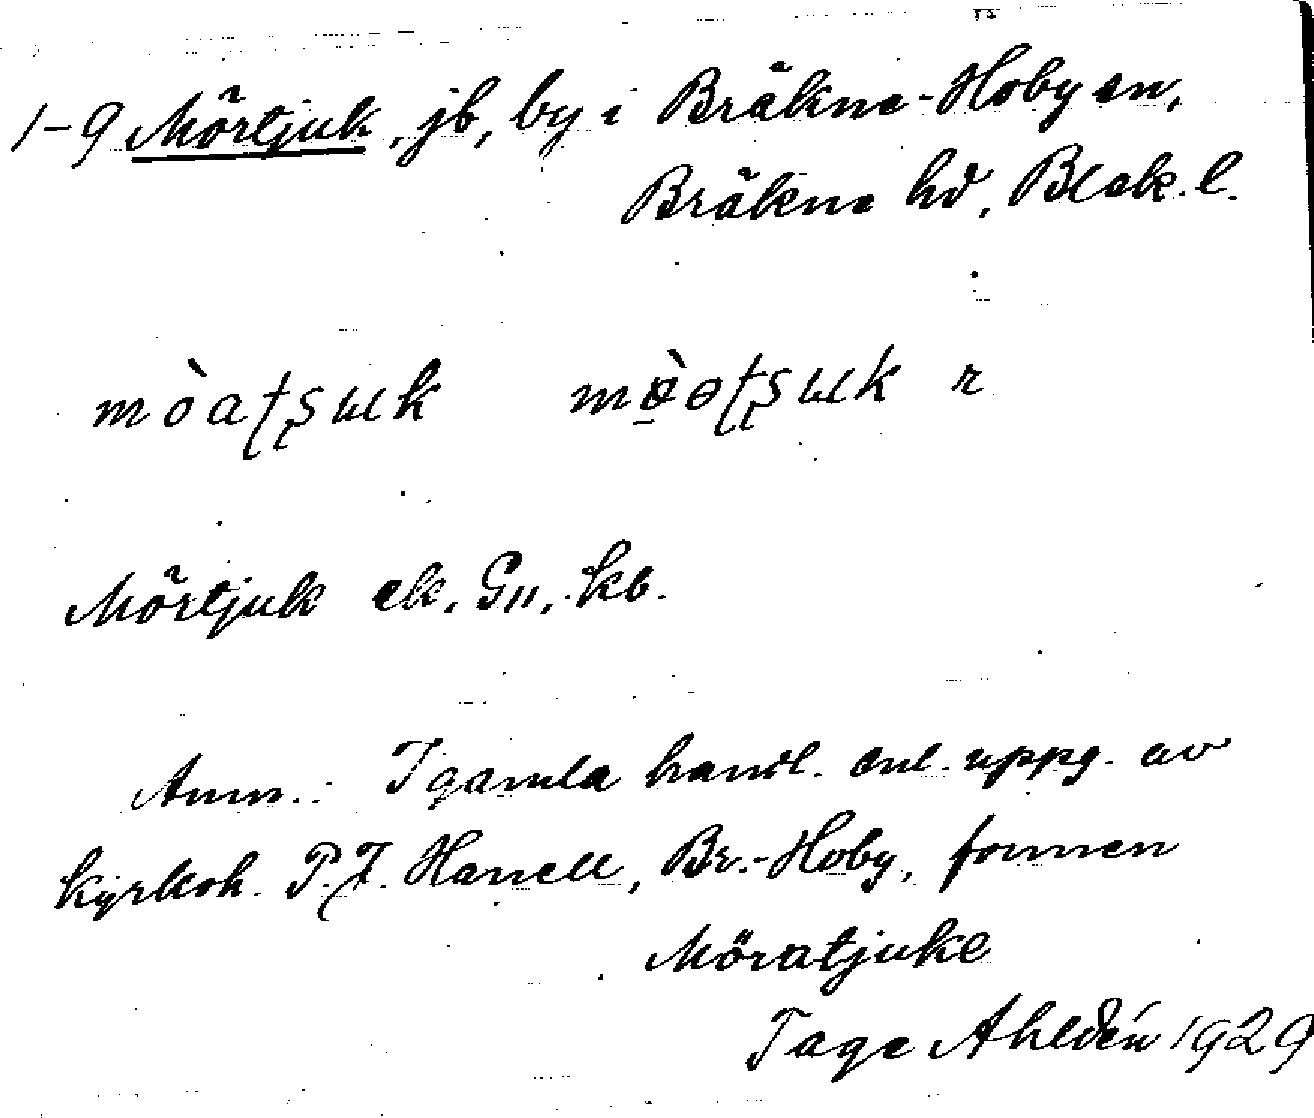 1-9 Mörtjuk, jb, by i Bräkne-Hoby sn,
Bräkne hd, Blek. l.
mòatʂuk mɵ̀ɵtʂuk r
Mörtjuk ek. G11, kb.
Anm.: I gamla handl. enl. uppg. av
kyrkoh. P.J. Hanell, Br.-Hoby, formen
Möratjuke
Tage Ahldén 1929